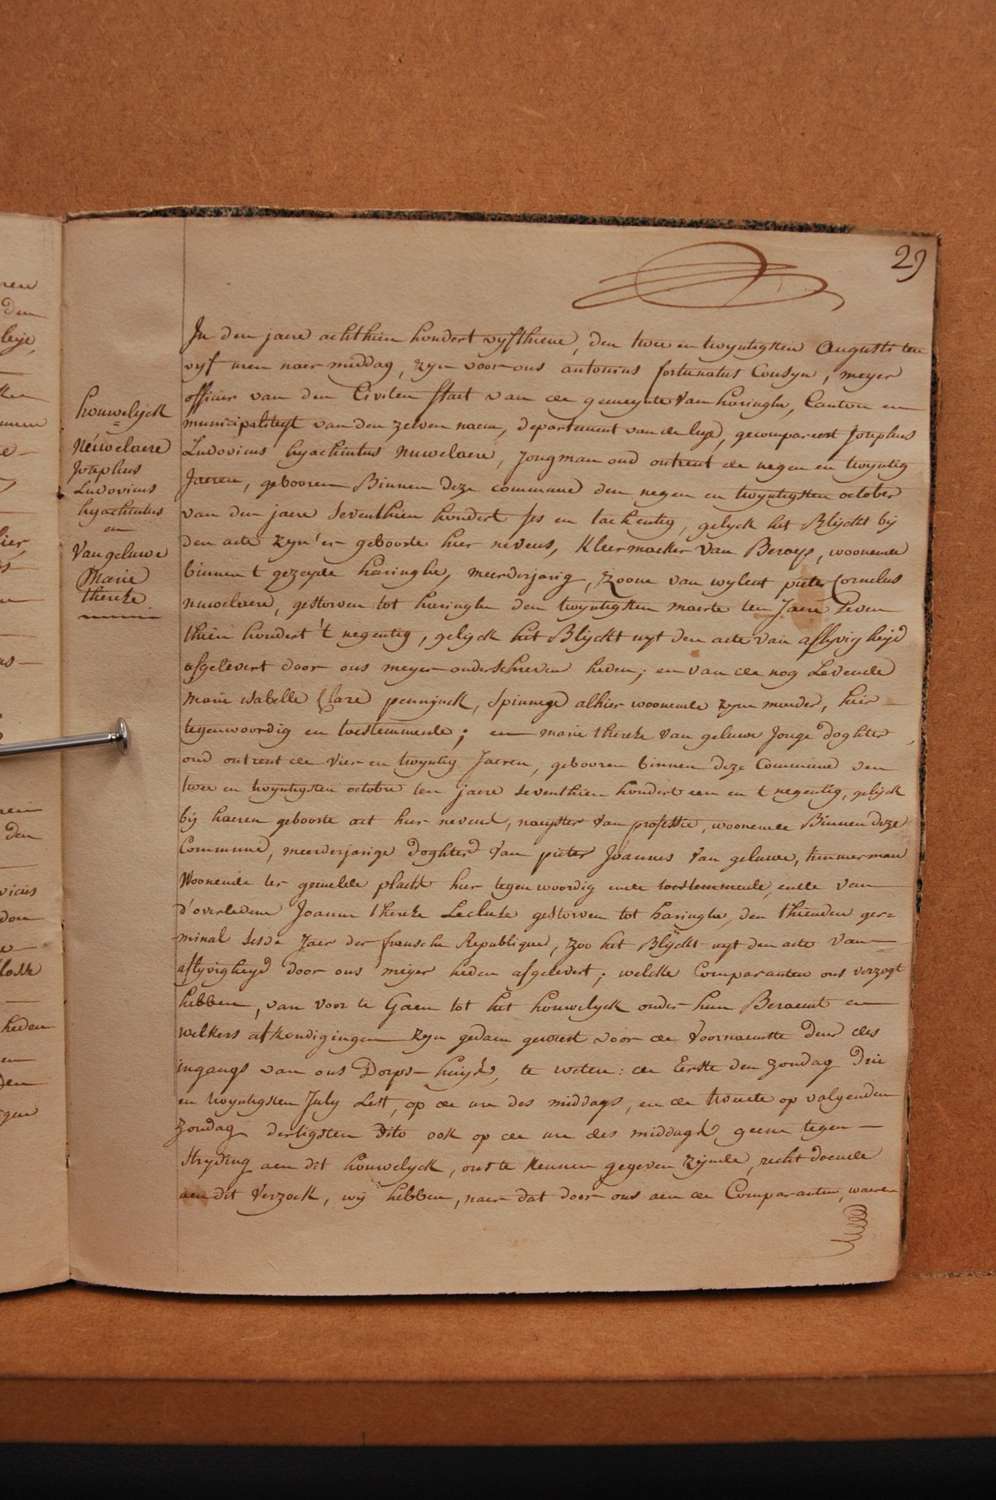 29
In den jaere achthien hondert vyfthiene, den twee en twyntigsten Augusti ten
vyf uren naer middag, zyn voor ons antonius fortunatus Cousyn, meyer
officier van den Civilen staet van de gemeynte van haringhe, Canton en
municipaliteyt van den zelven naem, departement van de leye, gecompareert Josephus
Ludovicus hyachintus Nuwelaere, jongman oud ontrent de negen en twyntig
Jaeren, gebooren Binnen deze commune den negen en twyntigsten october
van den jaere seventhien hondert ses en tachentig, gelyck het Blyckt bij
den acte zyn'er geboorte hier nevens, kleermaeker van Beroep, woonende
binnen 't gezeyde haringhe, meerderjarig, zoone van wylent pieter Cornelus
nuwelaere, gestorven tot haringhe den twyntigsten maerte ten Jaere seven
thien hondert 't negentig, gelyck het Blyckt uyt den acte van aflyvigheyd
afgelevert door ons meyer onderschreven heden; en van de nog Levende
Marie isabelle Clare pennynck, spinnege alhier woonende zyn moeder, hier
tegenwoordig en toestemmende; en marie thereze van geluwe Jonge doghter
oud ontrent de vier en twyntig Jaeren, gebooren binnen deze Commune den
twee en twyntigsten octobre ten jaere seventhien hondert een en t negentig, gelyck
bij haeren geboorte act hier nevens, naeyster van professie, woonende Binnen deze
Commune, meerderjarige doghter van pieter Joannes Van geluwe, timmerman
Woonende ter gemelde plaets hier tegenwoordig ende toestemmende, ende van
d'overledene Joanne thereze Lecluze gestorven tot haringhe, den thienden ger=
minal sesde Jaer der fransche Republique, zoo het Blyckt uyt den acte van
aflyvigheyd door ons meyer heden afgelevert; welcke Comparanten ons verzogt
hebben, van voor te Gaen tot het houwelyck onder hun Beraemt en
welkers afkondigingen zyn gedaen geweest voor de voornaemste deur des
ingangs van ons Dorps-huys, te weten: de Eerste den zondag Drie
en twyntigsten July Lest, op de ure des middags, en de tweete op volgenden
zondag dertigsten dito ook op de ure des middags geene tegen
stryding aen dit houwelyck, ons te kennen gegeven zynde, recht doende
aen dit verzoek, wy hebben, naer dat door ons aen de Comparanten, waere
houwelijck
=
Neuwelaere
Josephus
Ludovicus
hyachintus
en
Van geluwe
Marie
thereze
den
leye,
lier,
den
heden